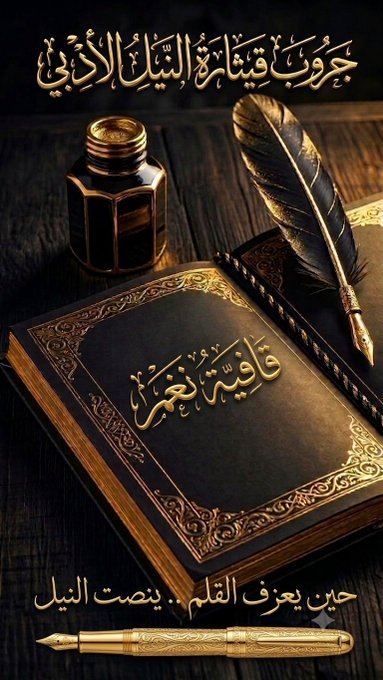 جَرُوبَ قِيثَارَةُ النَّيلِ الأَدِبي
قَافِيَّة نُغَمْ
حين يعزف القلم .. ينصت النيل